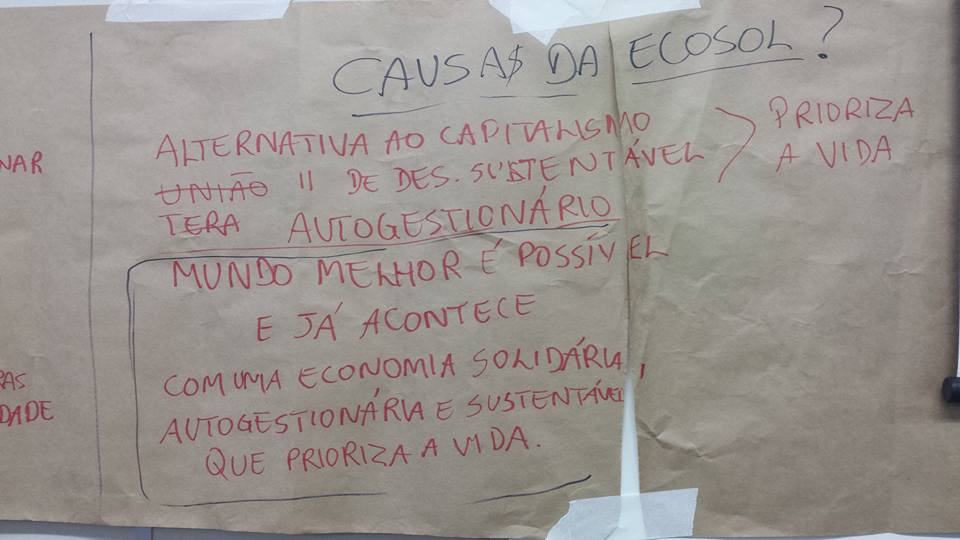 CAUSAS DA ECOSOL?
ALTERNATIVA AO CAPITALISMO
UNIÃO " DE DES. SUSTENTÁVEL
TERA AUTOGESTIONÁRIO
PRIORIZA
A VIDA
MUNDO MELHOR É POSSÍVEL
E JÁ ACONTECE
COM UMA ECONOMIA SOLIDÁRIA,
AUTOGESTIONÁRIA E SUSTENTÁVEL
QUE PRIORIZA A VIDA.
NAR
RAS
DADE